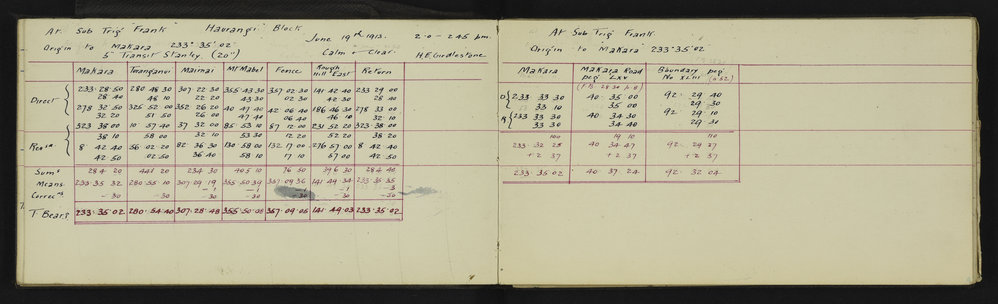 At Sub Trig "Frank" Haurangi Block
June 19th 1913. 2·0 - 2·45 p.m.
Origin to Makara 233° 35' 02"
5" Transit Stanley (20") Calm & Clear. H.E. Girdlestone
Makara Mairnai Mt Mabel Fence Rough Hill East Return
Direct 233·28·50 280 48 30 307 22 30 355 43 30 357 02 30 141 42 40 233 29 00
28 40 48 10 22 20 43 30 02 30 42 30 28 40
278 32 50 325 52 00 352 26 20 40 47 40 42 06 40 186 46 30 278 33 00
32 20 51 50 26 00 47 40 06 40 46 10 32 10
323 38 00 10 57 40 37 32 00 85 53 10 87 12 00 231 52 20 323 38 00
38 10 58 00 32 10 53 30 12 20 52 20 38 20
8 42 40 56 02 20 82 36 30 130 58 00 132 17 00 276 57 00 8 42 40
42 50 02 50 36 40 58 10 17 10 57 00 42 50
Sums 284 20 441 20 234 30 405 10 76 50 396 30 284 40
Means 233·35 32 280·55·10 307·29·19 355·50·39 357·09·36 141·49·34 233·35·35
-1 -1 -1 -1 -3
Correcns -30 -30 -30 -30 -30 -30 -30
T Bears 233·35·02 280·54·40 307·28·48 355·50·08 357·09·05 141·49·03 233·35·02
At Sub Trig Frank
Origin to Makara 233°35'02
Makara Makara Road peg LXV Boundary peg No XLIII
D 233 33 30 40 35 00 92 29 40
33 10 35 00 29 30
R 233 33 30 40 34 30 92 29 10
33 30 34 40 29 30
100 19 10 110
233 32 25 40 34 47 92 29 27
+2 37 +2 37 +2 37
233·35 02 40 37 24 92 32 04